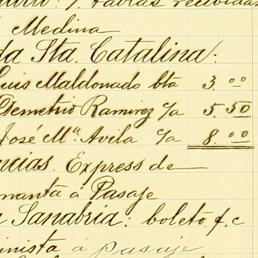 7 Habras recibidas
Medina
da Sta. Catalina:
Luis Maldonado bta 3.00
Demetrio Ramirez c/a 5.50
José Ma. Avila c/a 8.00
ncias. Express de
manta á Pasaje
Sanabria: boleto f.c
nista á pasaje